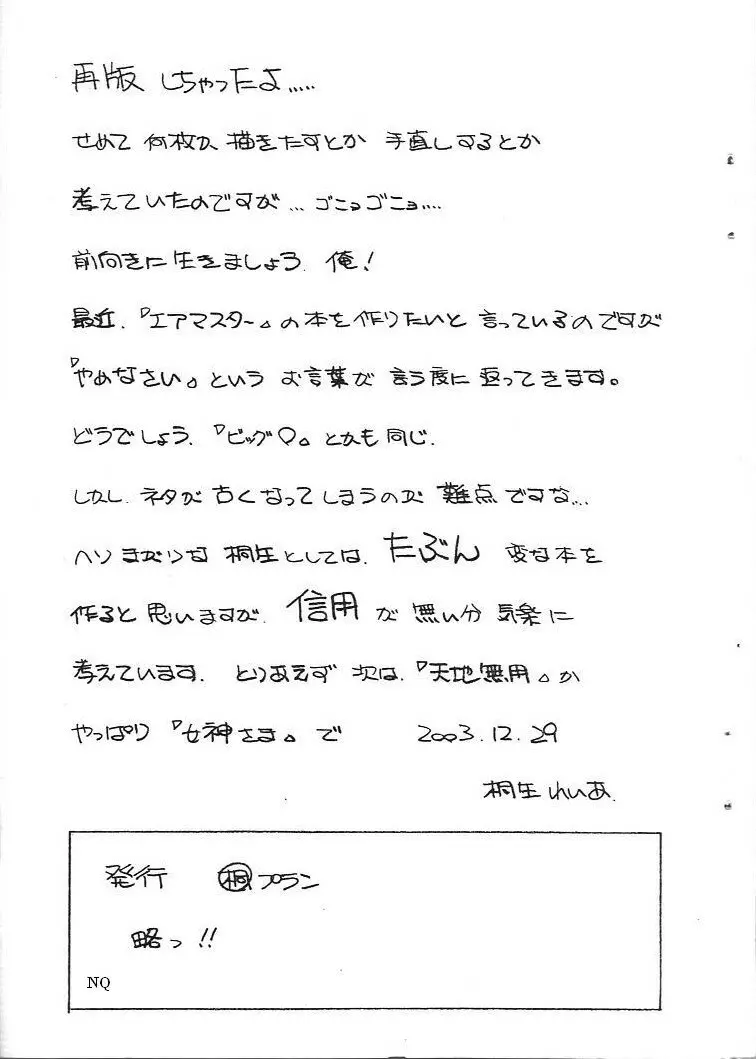 再版 しちゃったよ.....
せめて 何枚か 描きたすとか 手直しするとか
考えていたのですが... ゴニョゴニョ....
前向きに生きましょう 俺!
最近.『エアマスター』の本を作りたいと 言っているのですが
『やめなさい』という お言葉が 言う度に 返ってきます。
どうでしょう.『ビッグO』とかも同じ.
しかし. ネタが 古くなってしまうのが 難点ですな...
ヘソまがりな 桐生としては. たぶん 変な本を
作ると思いますが. 信用が 無い分 気楽に
考えています. とりあえず 次は.『天地無用』か
やっぱり『女神さま』で 2003.12.29
桐生れいあ.
発行 桐プラン
略っ!!
NQ